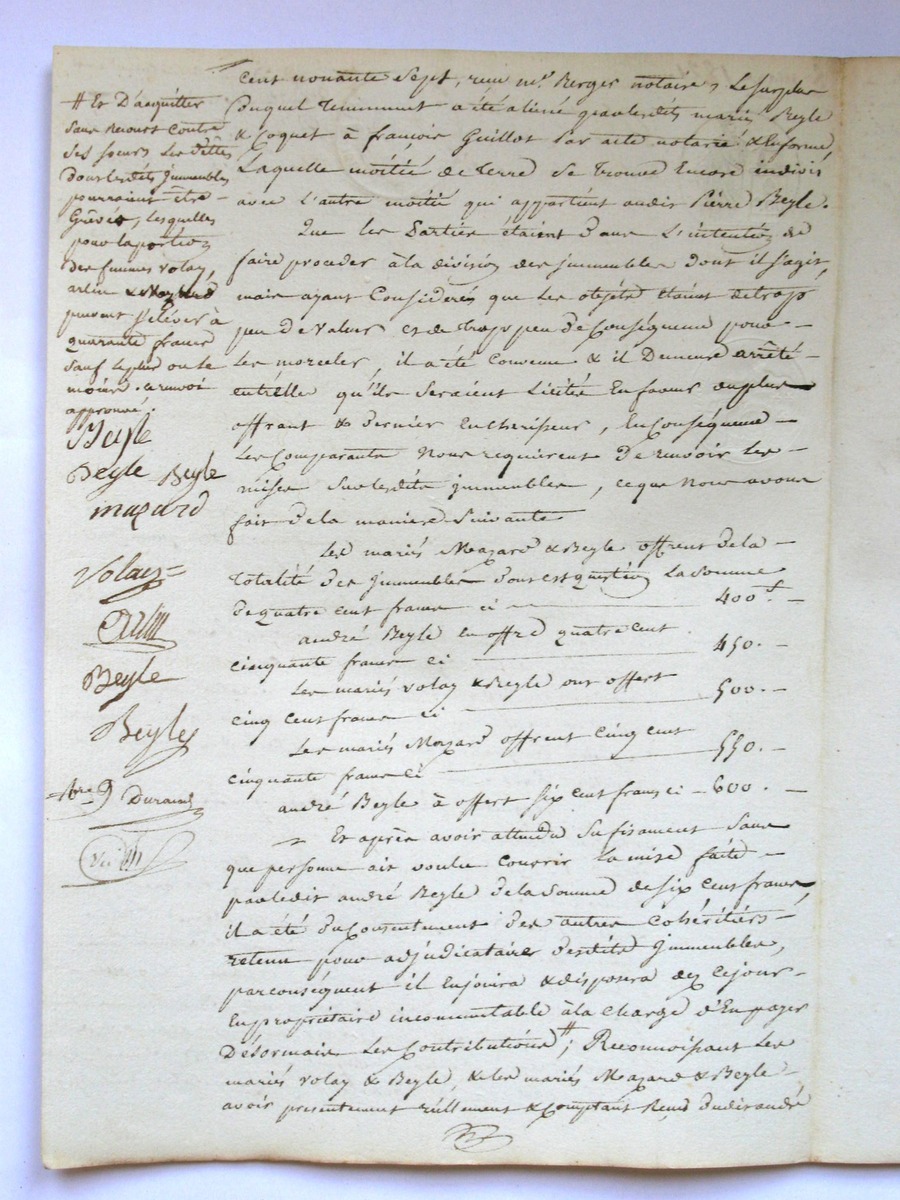 cent nonante Sept, reçu m.e Berger notaire, Le surplus
duquel tenement a été aliéné par lesdits mariés Beyle
& Coquet à françois Guillot Par acte notarié & En forme,
Laquelle moitiée de terre Se trouve Encore indivis
avec L'autre moitié qui appartient audit Pierre Beyle.
Que les Parties étaient Dans L'intention de
faire proceder à la division des jmmeubles dont il s'agit,
mais ayant Considérés que Les objets étaient de trop
peu de Valeur et de trop peu de Conséquence pour
Les morceler, il a été Convenu & il Demeure arrêté
entr'elle qu'ils Seraient Licités En faveur du plus
offrant & dernier Encherisseur, En Conséquence
Les Comparants Nous requirent De recevoir Les
mises Sur lesdits jmmeubles, ce que Nous avons
fait de la maniere Suivante
Les mariés Mazard & Beyle offrent de la
Totalité des jmmeubles dont est question La somme
de quatre cent francs ci 400.f
andré Beyle en offre quatre cent
cinquante francs ci 450.
Les mariés Volay & Beyle ont offert
cinq cent francs ci 500.
Les mariés Mazard offrent cinq cent
cinquante francs ci 550.
andré Beyle à offert Six cent francs ci 600.
Et après avoir attendu Sufisament Sans
que personne ait voulu Couvrir La mise faite
par ledit andré Beyle de la Somme de Six Cent francs,
il a été du Consentement des autres Cohéritiers
retenu pour adjudicataire desdits jmmeubles,
par conséquent il En jouira & disposera dez Ce jour
En propriétaire incommutable à la charge d'En payer
Désormais Les Contributions #; Reconnoissant Les
mariés Volay & Beyle, & les mariés Mazard & Beyle
avoir presentement réellement & Comptant Reçus dudit andré
# Et D'acquitter
Sans Recourt Contre
Ses Soeurs Les dettes
dont lesdits jmmeubles
pourraient être
Grévés, Lesquelles
pour la portion
des femmes Volay,
arlin & Mazard
peuvent s'élever à
quarante francs
Sauf le plus ou le
moins. ce renvoi
approuvé.
Beyle
Beyle Beyle
mazard
Volay
Arlin
Beyle
Beyle
Durand